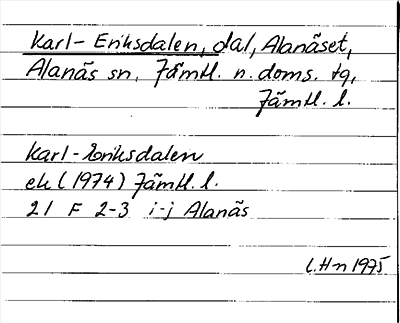 Karl-Eriksdalen, dal, Alanäset,
Alanäs sn, Jämtl. n. doms. tg,
Jämtl. l.
Karl-Eriksdalen
ek (1974) Jämtl. l.
21 F 2-3 i-j Alanäs
L.H-n 1975